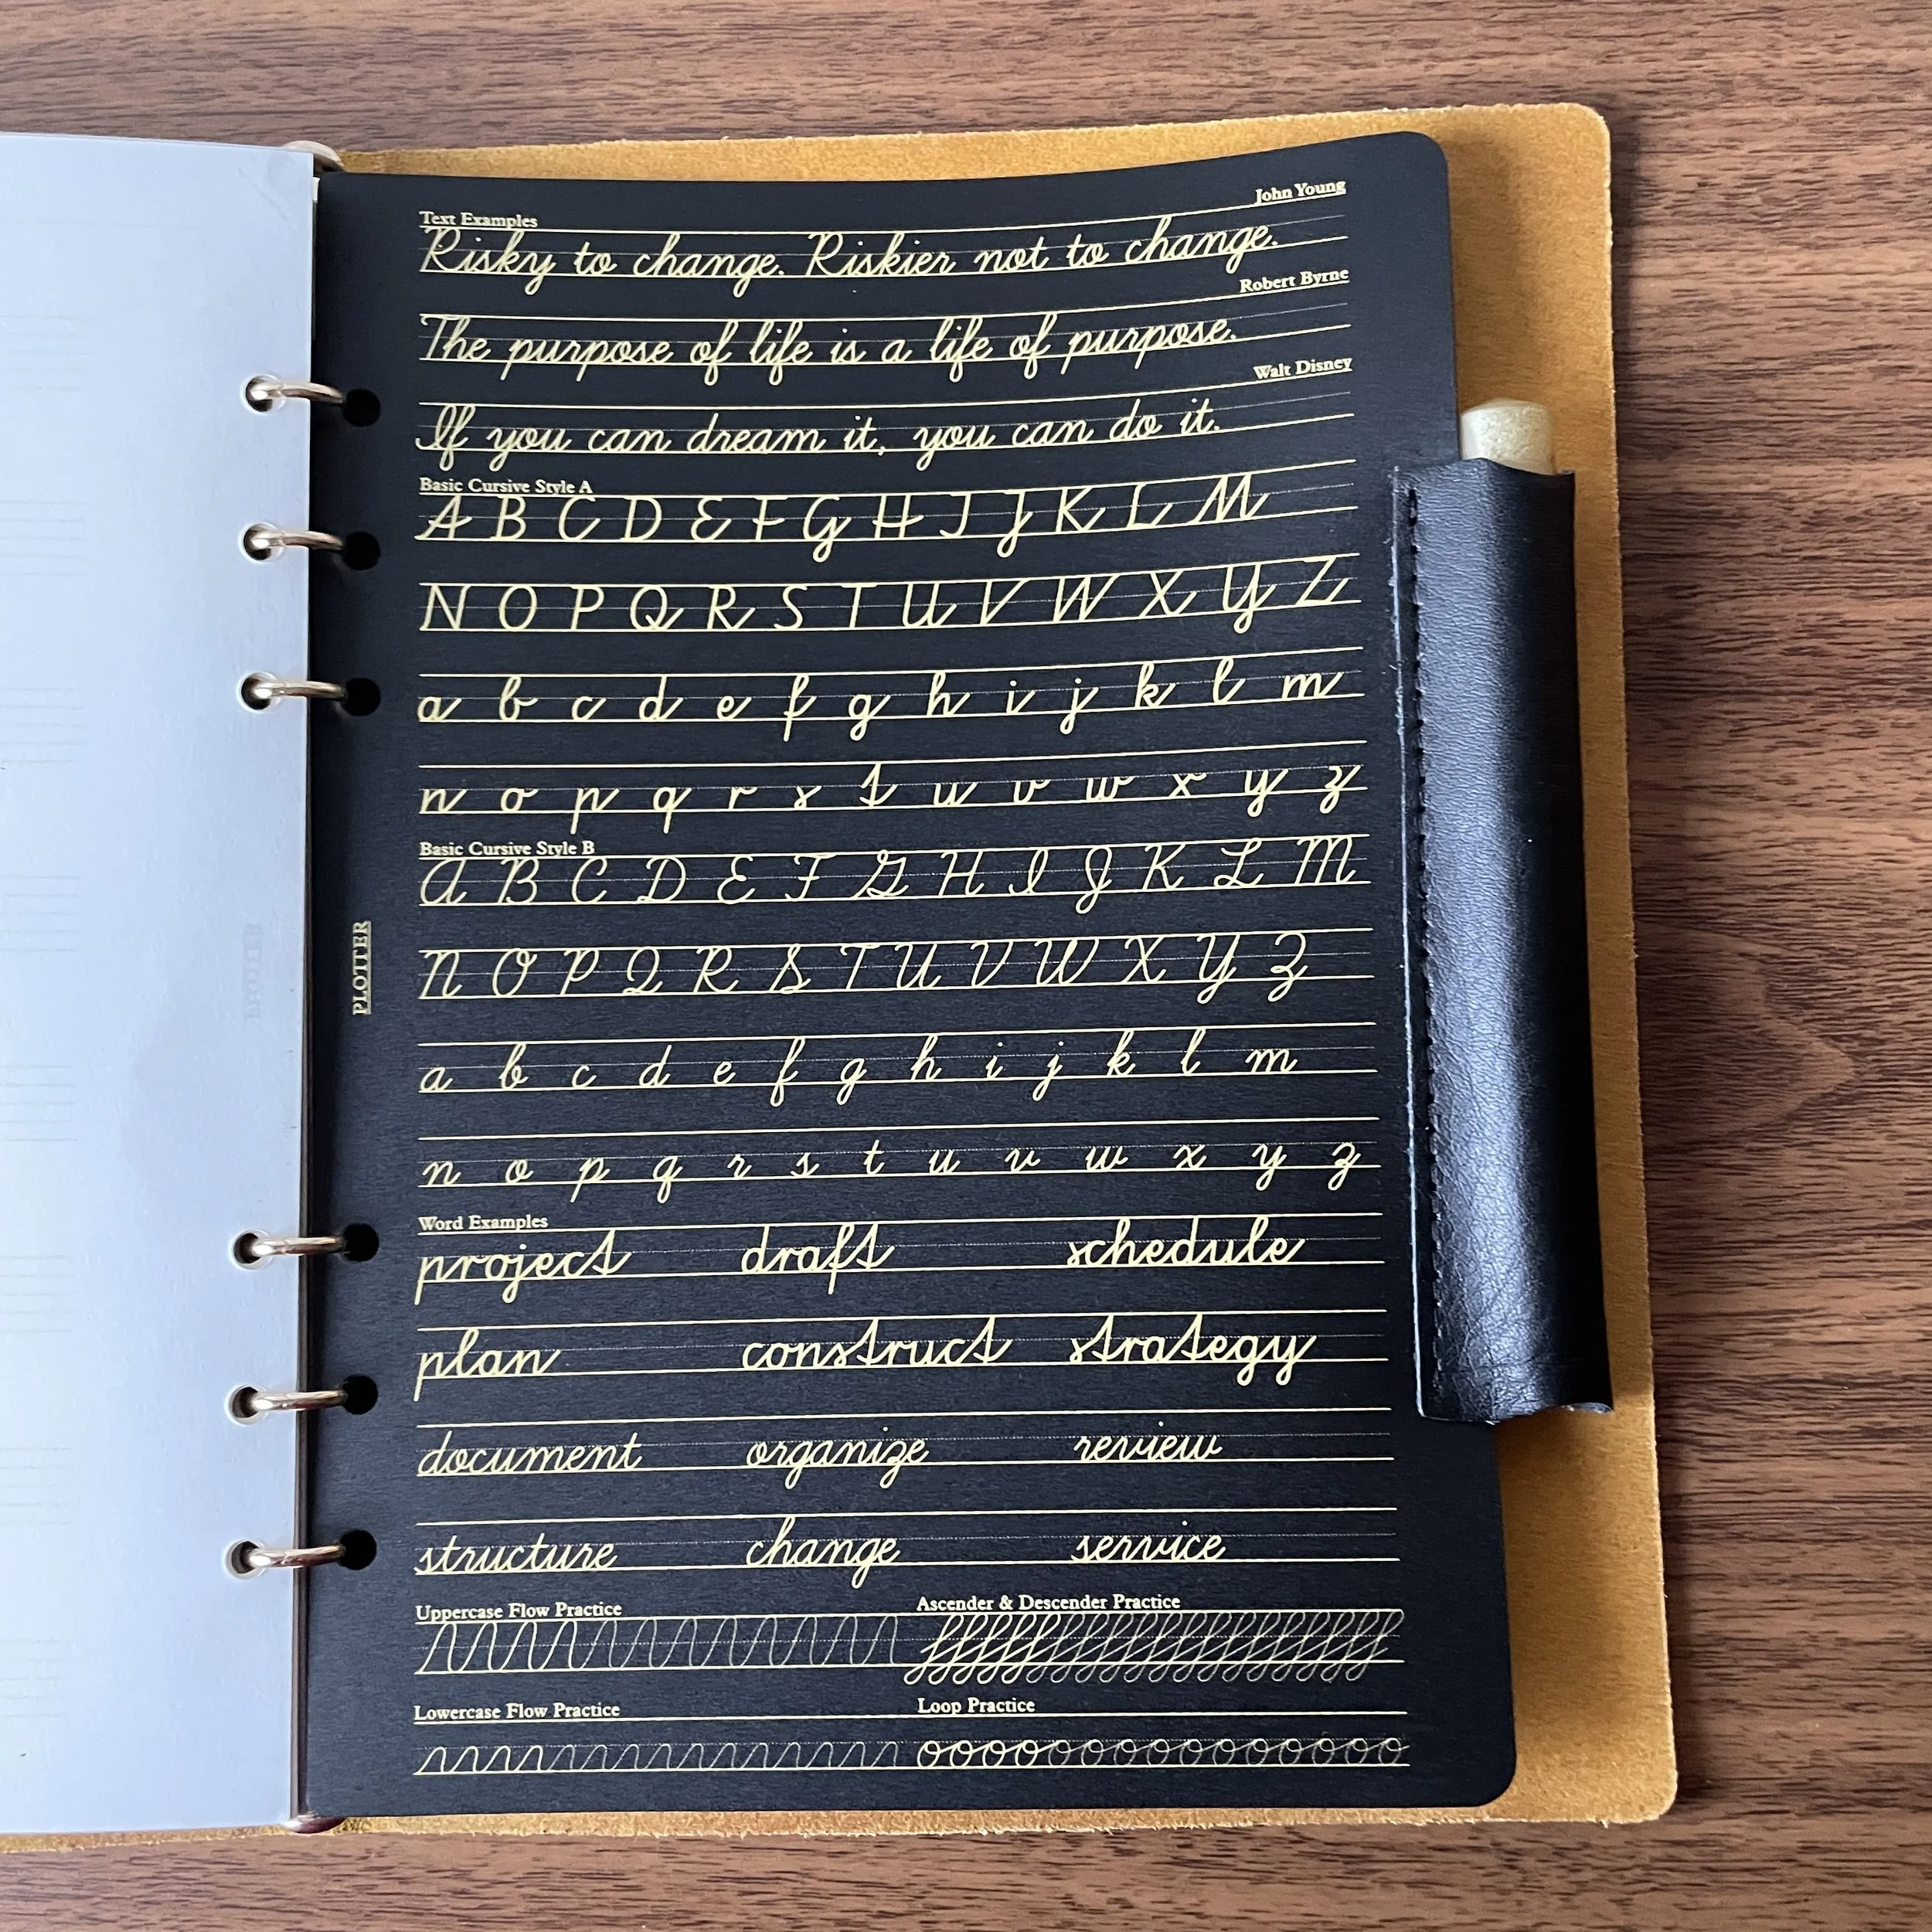 John Young
Text Examples
Risky to change. Riskier not to change.
Robert Byrne
The purpose of life is a life of purpose.
Walt Disney
If you can dream it, you can do it.
Basic Cursive Style A
A B C D E F G H I J K L M
N O P Q R S T U V W X Y Z
a b c d e f g h i j k l m
n o p q r s t u v w x y z
Basic Cursive Style B
A B C D E F G H I J K L M
N O P Q R S T U V W X Y Z
PLOTTER
a b c d e f g h i j k l m
n o p q r s t u v w x y z
Word Examples
project draft schedule
plan construct strategy
document organize review
structure change service
Uppercase Flow Practice Ascender & Descender Practice
Lowercase Flow Practice Loop Practice